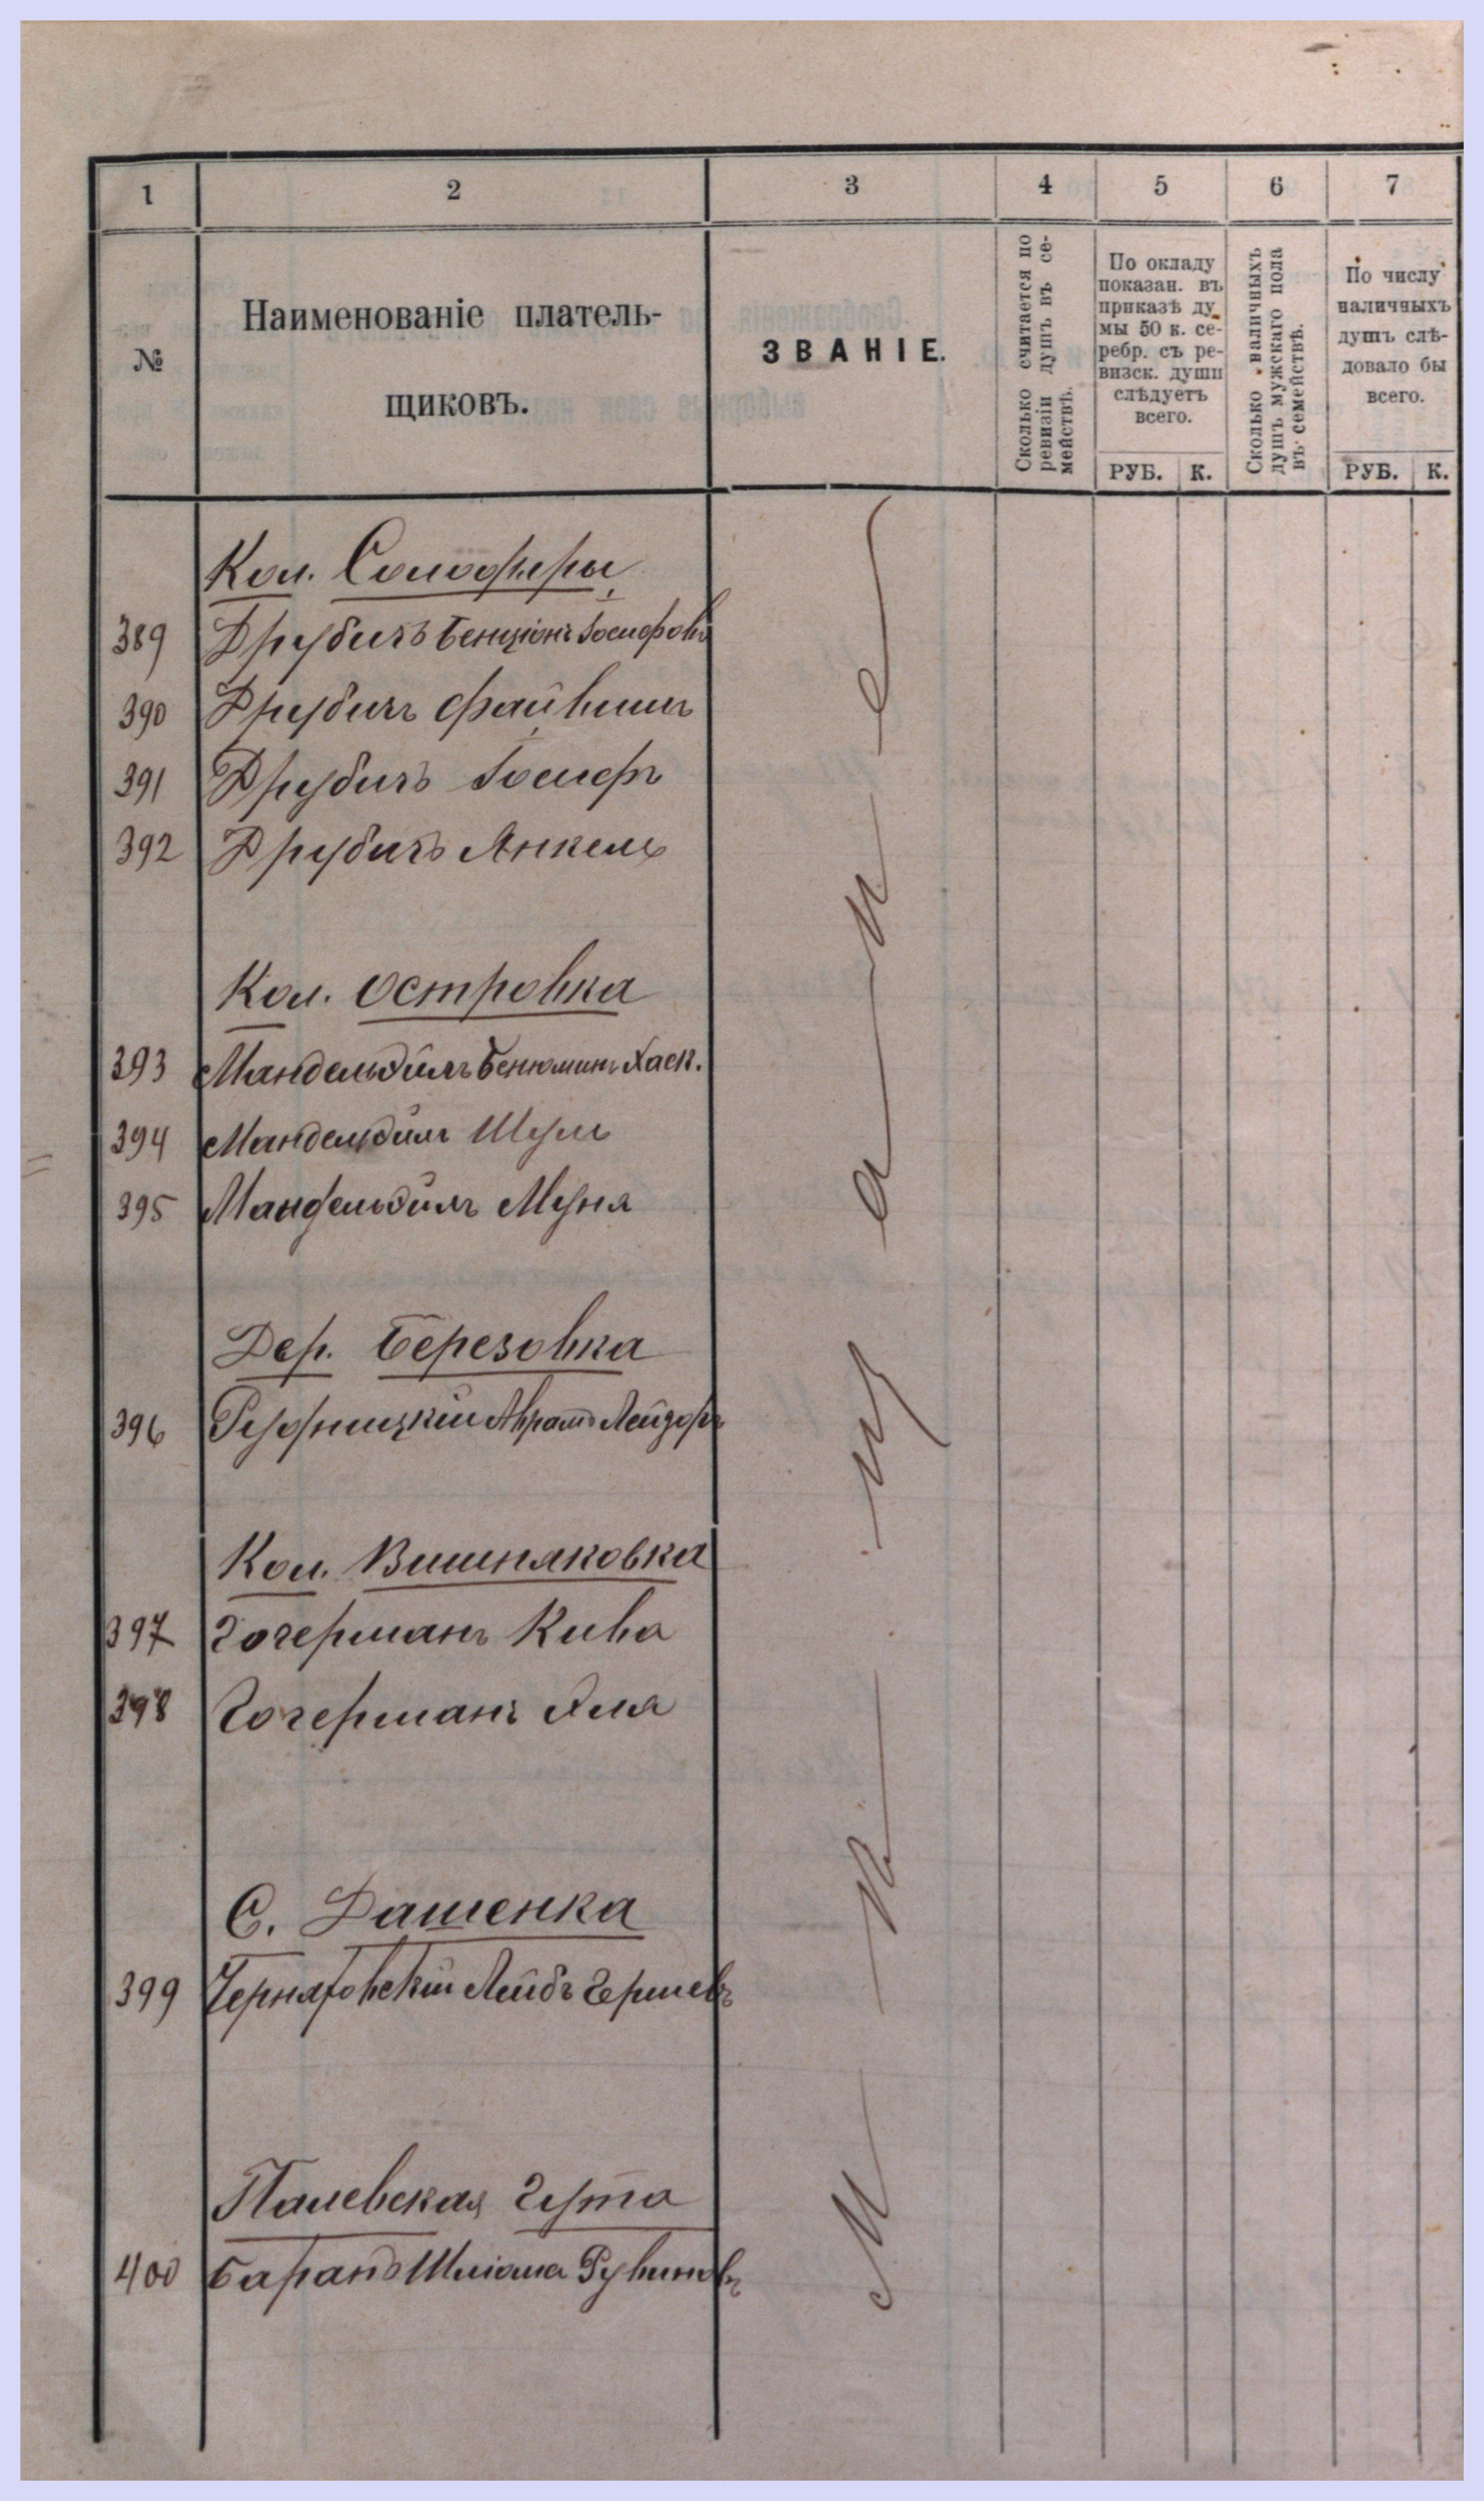 1 2 3 4 5 6 7
№
Наименованіе платель-
щиковъ.
ЗВАНІЕ.
Сколько считается по
ревизіи душъ въ се-
мействѣ.
По окладу
показан. въ
приказѣ ду
мы 50 к. се-
ребр. съ ре-
визск. души
слѣдуетъ
всего.
РУБ. К.
Сколько наличныхъ
душъ мужскаго пола
въ семействѣ.
По числу
наличныхъ
душъ слѣ-
довало бы
всего.
РУБ. К.
Кол.
389 Друбичъ Бенціонъ Іосифовъ
390 Друбичъ Файвишъ
391 Друбичъ Іосифъ
392 Друбичъ Янкель
Кол. Островка
393 Мандельдилъ Бенюминъ Хаск.
394 Мандельдилъ Шуль
395 Мандельдилъ Муня
Дер. Березовка
396 Аврамъ Лейзоръ
Кол. Вишняковка
397 Гочерманъ Кива
398 Гочерманъ Эля
С. Дашенка
399 Черняховскій Лейбъ Гершевъ
Палевская Гута
400 Баранъ Шліома Рувиновъ
Мѣщане